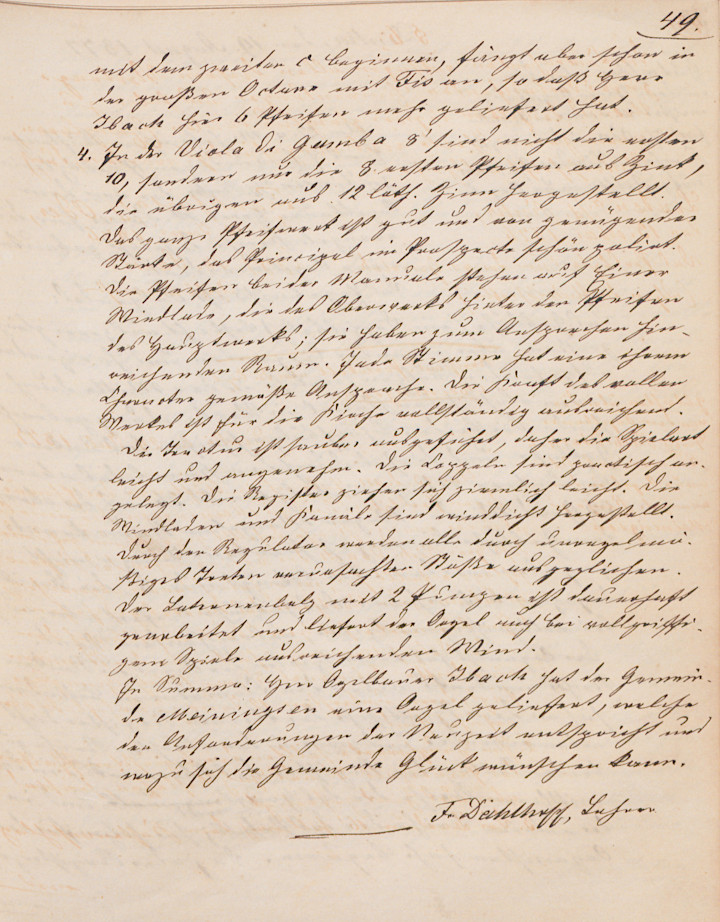 49.
mit dem zweiten C beginnen, fängt aber schon in
der großen Octave mit Fis an, so daß Herr
Ibach hier 6 Pfeifen mehr geliefert hat.
4. In der Viola di Gamba 8' sind nicht die ersten
10, sondern nur die 8 ersten Pfeifen aus Zink,
die übrigen aus 12 löth. Zinn hergestellt.
Das ganze Pfeifwerk ist gut und von genügender
Stärke, das Principal im Prospecte schön polirt.
Die Pfeifen beider Manuale stehen auf Einer
Windlade, die des Oberwerks hinter den Pfeifen
des Hauptwerks; sie haben zum Ansprechen hin-
reichenden Raum. Jede Stimme hat eine ihrem
Charakter gemäße Ansprache. Die Kraft des vollen
Werkes ist für die Kirche vollständig ausreichend.
Die Tractur ist sauber ausgeführt, daher die Spielart
leicht und angenehm. Die Coppeln sind practisch an-
gelegt. Die Register ziehen sich ziemlich leicht. Die
Windladen und Kanäle sind winddicht hergestellt.
Durch den Regulator werden alle durch unregelmä-
ßiges Treten verursachten Stöße ausgeglichen.
Der Laternenbalg mit 2 Pumpen ist dauerhaft
gearbeitet und liefert der Orgel auch bei vollgriffi-
gem Spiele ausreichenden Wind.
In Summa: Herr Orgelbauer Ibach hat der Gemein-
de Meiningsen eine Orgel geliefert, welche
den Anforderungen der Neuzeit entspricht und
wozu sich die Gemeinde Glück wünschen kann.
Fr. Lehrer